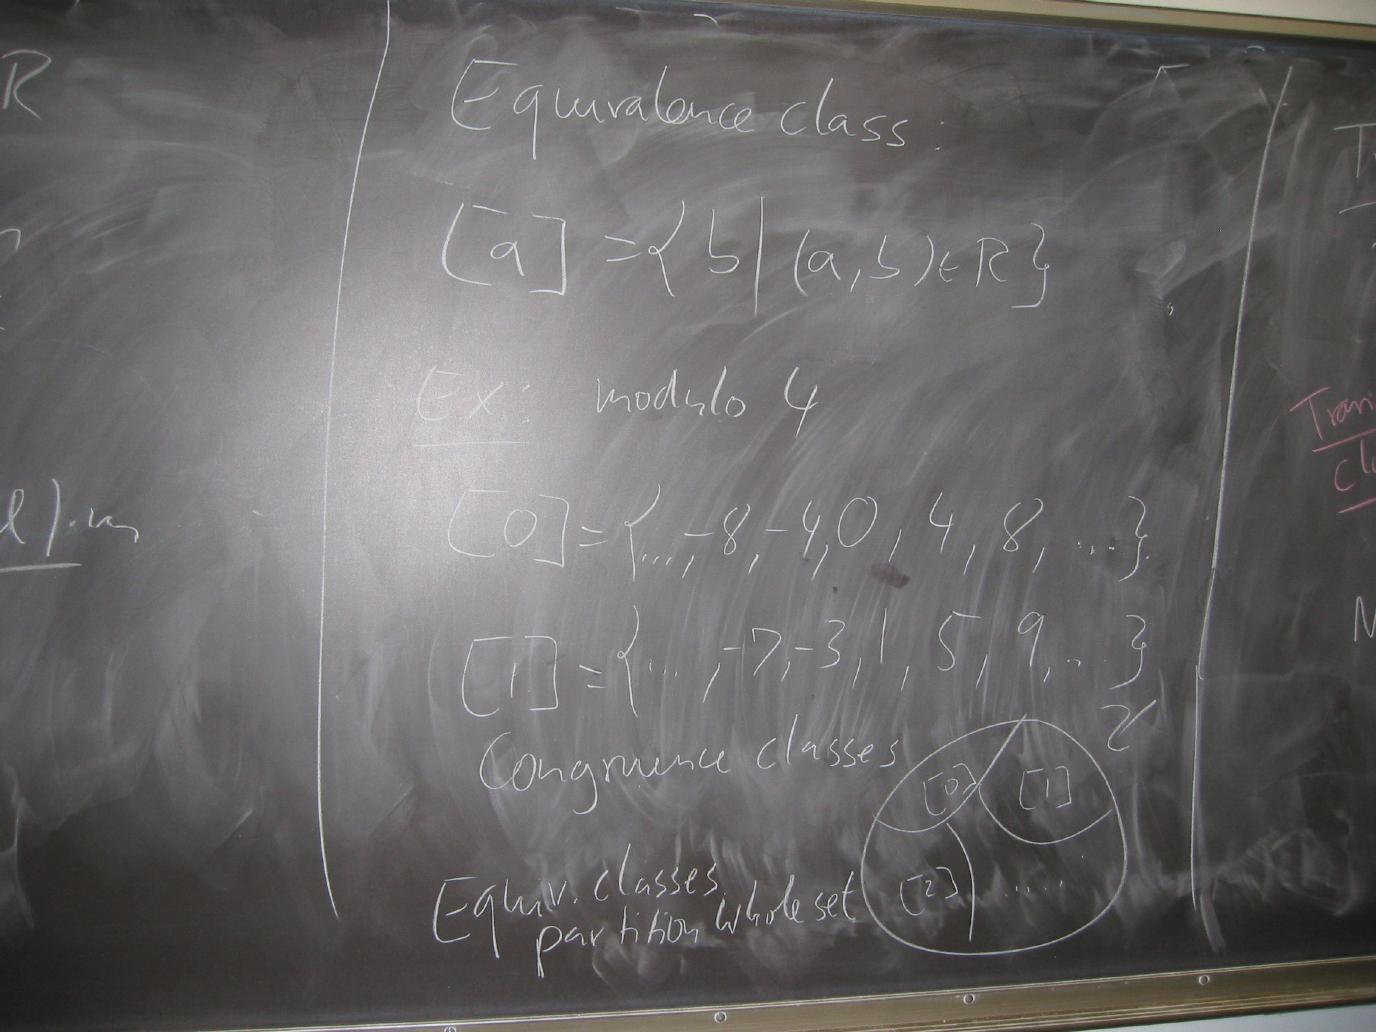 R
Equivalence class:
[a] = { b | (a,b) ∈ R }
Ex: modulo 4
[0] = {..., -8, -4, 0, 4, 8, ...}
[1] = {..., -7, -3, 1, 5, 9, ... }
Congruence classes
Z
[0] [1]
[2] .....
Equiv. classes
partition whole set